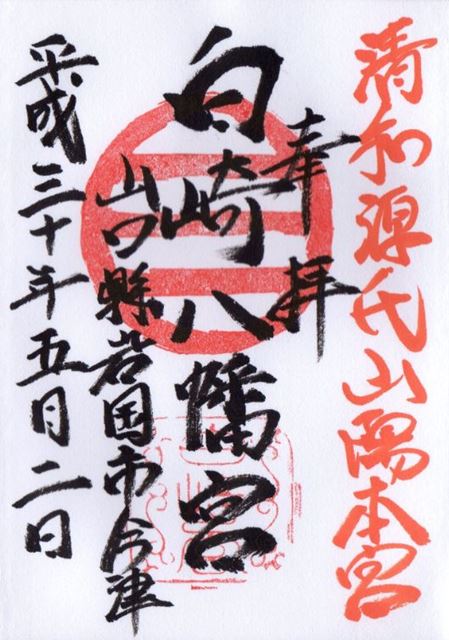 清和源氏山陽本宮
奉拝
白崎八幡宮
山口縣岩国市今津
平成三十年五月二日